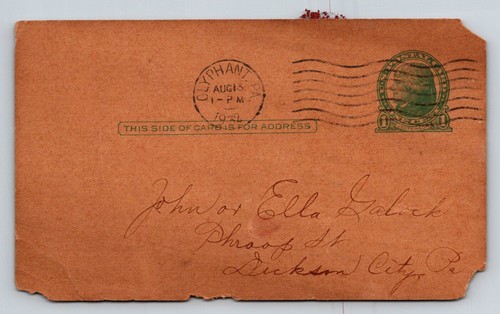 OLYPHANT, PA.
AUG 13
1-PM
THIS SIDE OF CARD IS FOR ADDRESS
John or Ella Galick
Phroop St
Dickson City, Pa